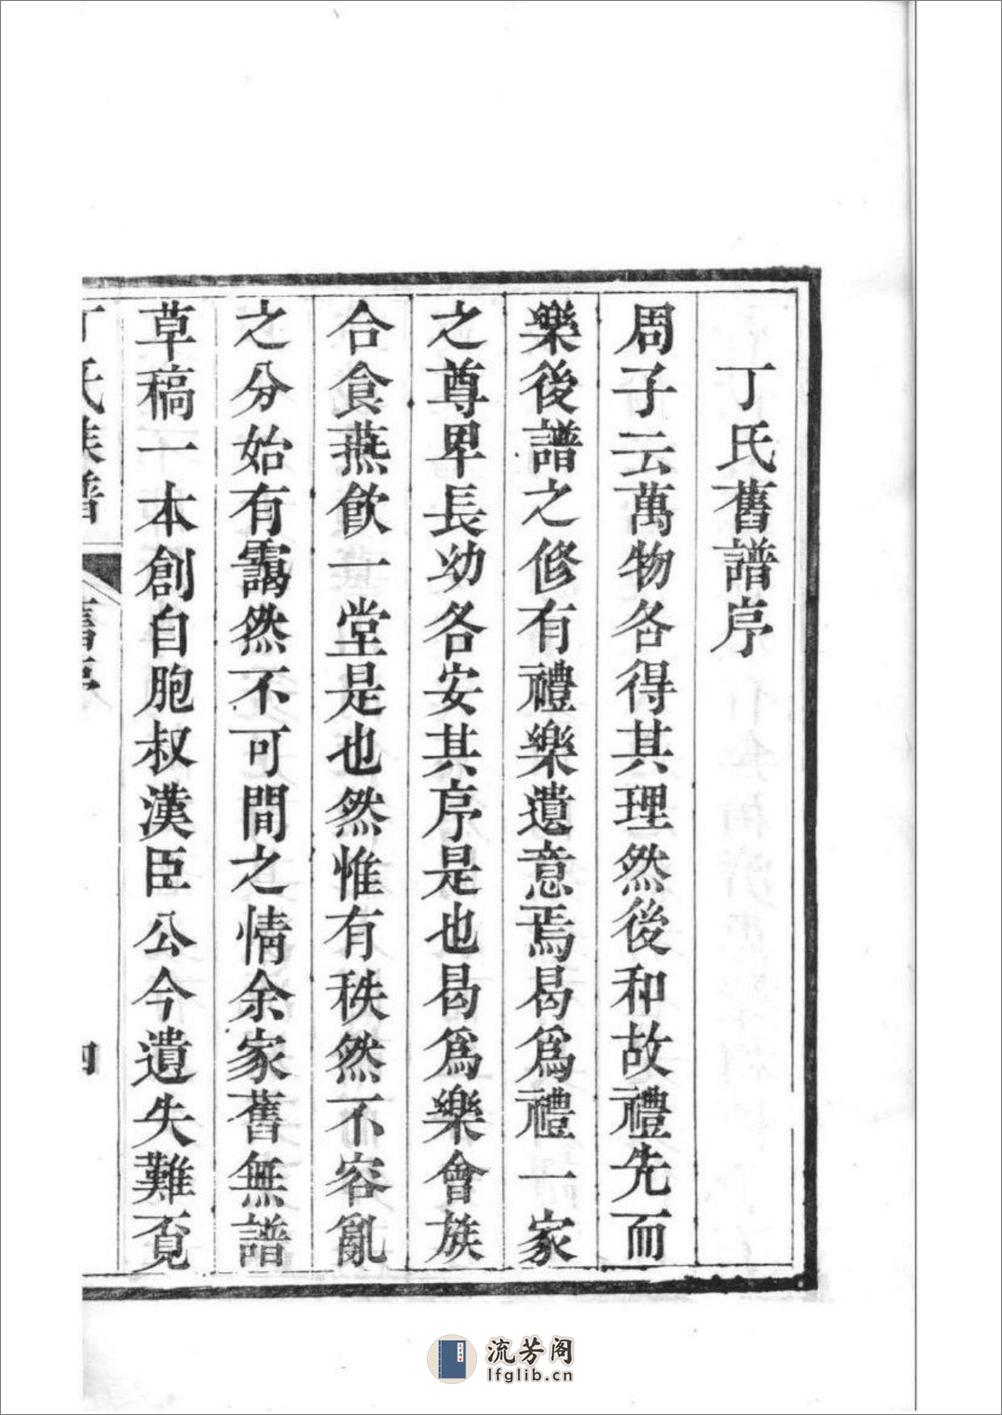 丁氏舊譜序
周子云萬物各得其理然後和故禮先而
樂後譜之修有禮樂遺意焉曷爲禮一家
之尊卑長幼各安其序是也曷爲樂會族
合食燕飲一堂是也然惟有秩然不容亂
之分始有靄然不可間之情余家舊無譜
草稿一本創自胞叔漢臣公今遺失難覓
丁氏族譜 舊序 四
流芳阁
lfglib.cn